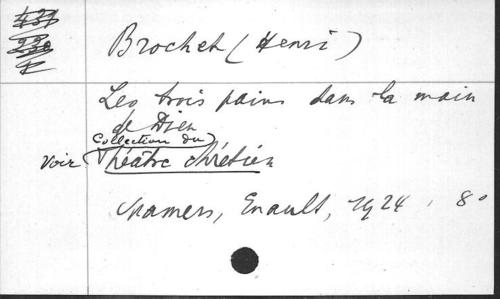 Brochet (Henri)
Les trois pains dans la main
de Dieu
Collection du
voir Théâtre chrétien
Mamers, Enault, 1924, 8°